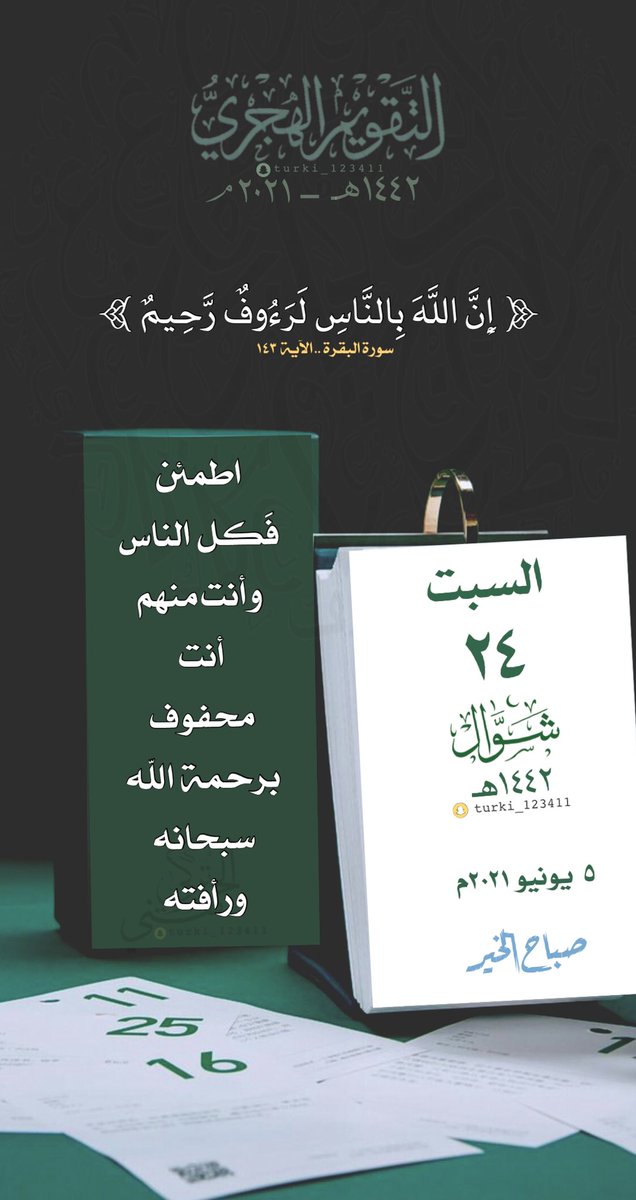 التَّقويم الهُجريُّ
turki_123411
١٤٤٢هـ – ٢٠٢١م
﴿ إِنَّ اللَّهَ بِالنَّاسِ لَرَءُوفٌ رَّحِيمٌ ﴾
سورة البقرة .. الآية ١٤٣
اطمئن
فَكل الناس
وأنت منهم
أنت
محفوف
برحمة الله
سبحانه
ورأفته
turki_123411
السبت
٢٤
شَوَّال
١٤٤٢هـ
turki_123411
٥ يونيو ٢٠٢١م
صباح الخير
11
25
16